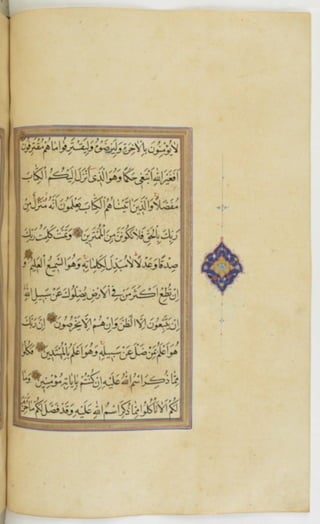 لا يؤمنون بالاخرة وليرضوه وليقترفوا ما هم مقترفون
افغير الله ابتغى حكما وهو الذى انزل اليكم الكتاب
مفصلا والذين اتيناهم الكتاب يعلمون انه منزل من
ربك بالحق فلا تكونن من الممترين وتمت كلمت ربك
صدقا وعدلا لا مبدل لكلماته وهو السميع العليم و
ان تطع اكثر من فى الارض يضلوك عن سبيل الله
ان يتبعون الا الظن وان هم الا يخرصون ان ربك
هو اعلم من يضل عن سبيله وهو اعلم بالمهتدين فكلوا
مما ذكر اسم الله عليه ان كنتم باياته مؤمنين وما
لكم الا تاكلوا مما ذكر اسم الله عليه وقد فصل لكم ما حرم